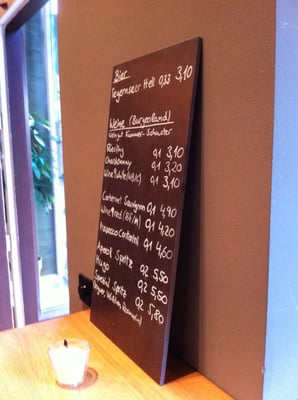 Bier
Tegernseer Hell 0,33 3,10
Weine (Burgenland)
Weingut Kummer-Schuster
Riesling 0,1 3,10
Chardonnay 0,1 3,20
0,1 3,10
Cabernet Sauvignon 0,1 4,90
0,1 4,20
Prosecco Contarini 0,1 4,60
Aperol Spritz 0,2 5,50
Hugo 0,2 5,50
Spezial Spritz 0,2 5,80